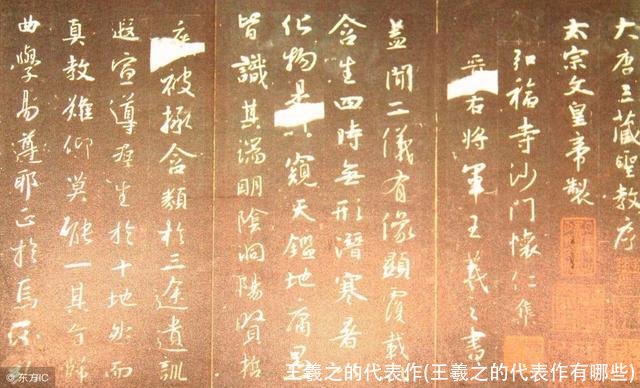 大唐三藏聖教序
太宗文皇帝製
弘福寺沙門懷仁集
右將軍王羲之書
蓋聞二儀有像顯覆載
含生四時無形潛寒暑
化物是以窺天鑑地庸愚
皆識其端明陰洞陽賢哲
被拯含類於三途遺訓
遐宣導羣生於十地然而
真教難仰莫能一其旨歸
曲學易遵耶正於焉
王羲之的代表作(王羲之的代表作有哪些)
©东方IC